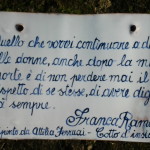 quello che vorrei continuare a d
alle donne, anche dopo la mia
morte è di non perdere mai il
rispetto di se stesse, di avere dign
tà sempre.
Franca Rame
dipinto da Attilio Ferracci - Cotto d'